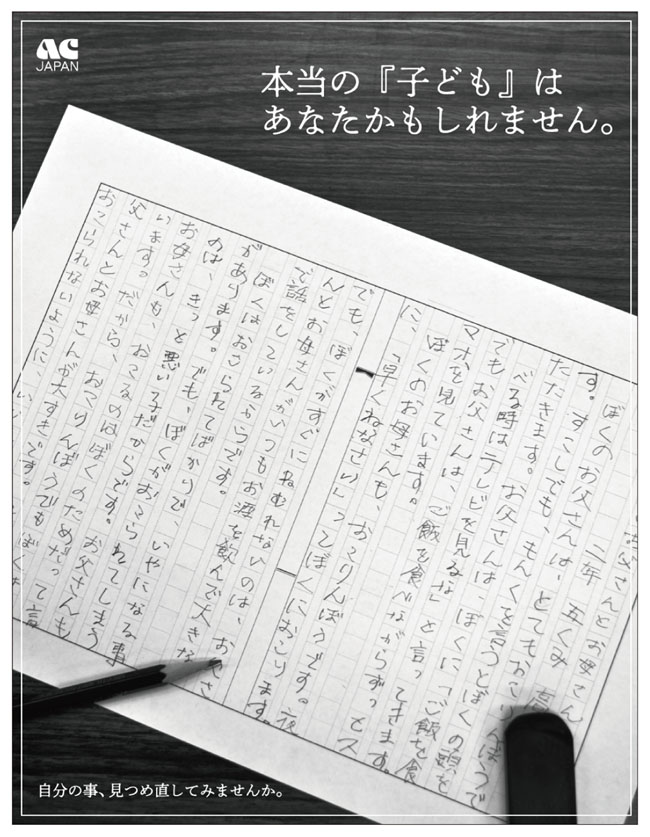 AC
JAPAN
本当の『子ども』は
あなたかもしれません。
お父さんとお母さん
二年 五くみ
ぼくのお父さんは、とてもおこりんぼうで
す。すこしでも、もんくを言うとぼくの頭を
たたきます。お父さんは、ぼくに「ご飯を食
べる時はテレビを見るな」と言ってきます。
でもお父さんは、ご飯を食べながらずっとス
マホを見ています。
ぼくのお母さんも、おこりんぼうです。夜
に、「早くねなさい」ってぼくにおこります。
でも、ぼくがすぐにねむれないのは、お父さ
んとお母さんがいつもお酒を飲んで大きな
で話をしているからです。
ぼくはおこられてばかりで、いやになる事
があります。でも、ぼくがおこられてしまう
のは、きっと悪い子だからです。お父さんも
お母さんも、おこるのはぼくのためだって言
います。だから、おこりんぼうでもぼくは
父さんとお母さんが大すきです。
おこられないように、いい
自分の事、見つめ直してみませんか。